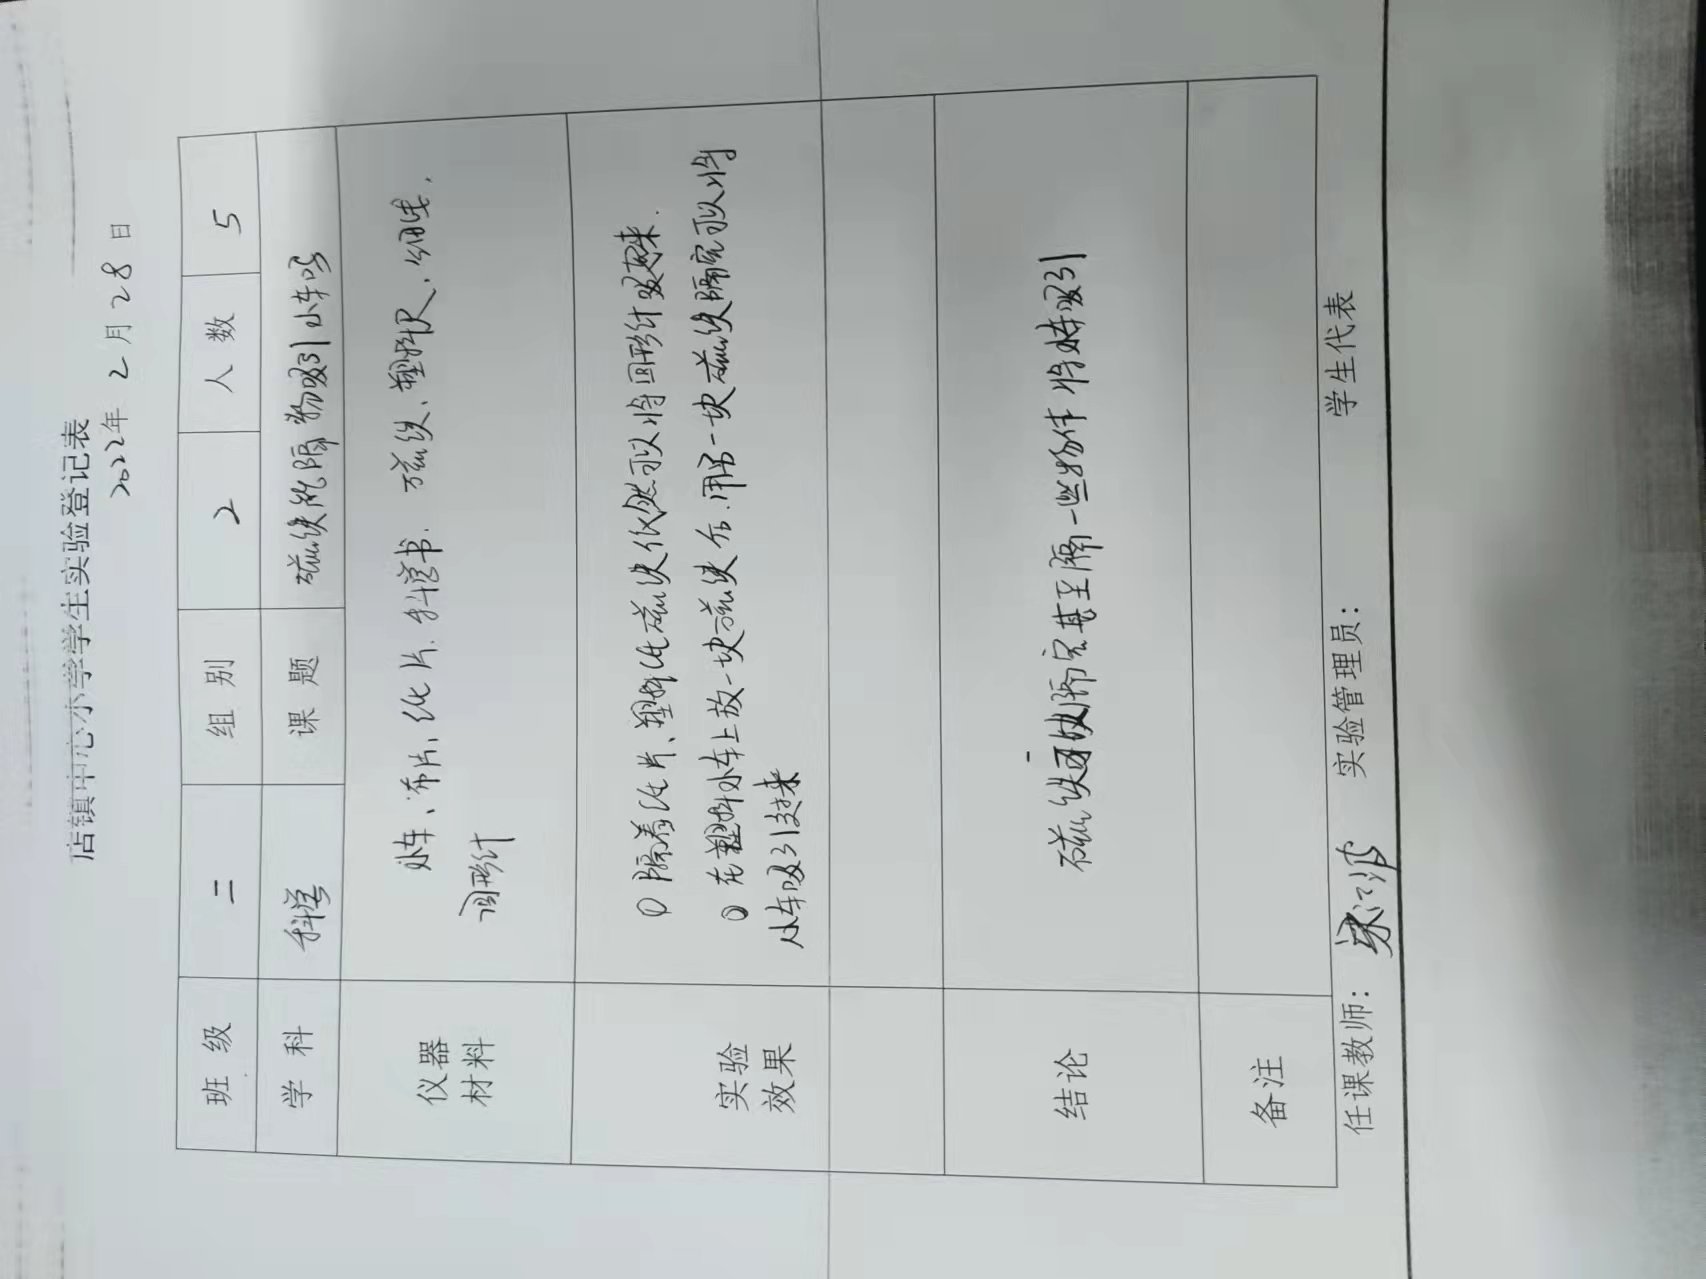 店镇中心小学学生实验登记表
2022年 2 月 28 日
班 级 二 组 别 2 人 数 5
学 科 科学 课 题 磁铁能隔物吸引小车吗
仪器材料 小车、布片、纸片、科学书、磁铁、塑料尺、细线、
回形针
实验效果 ① 隔着纸片、塑料纸磁铁仍然可以将回形针吸起来.
② 在塑料小车上放一块磁铁后.用另一块磁铁隔空可以将
小车吸引过来
结论 磁铁可以隔空甚至隔一些物体 将铁吸引
备注
任课教师： 实验管理员： 学生代表